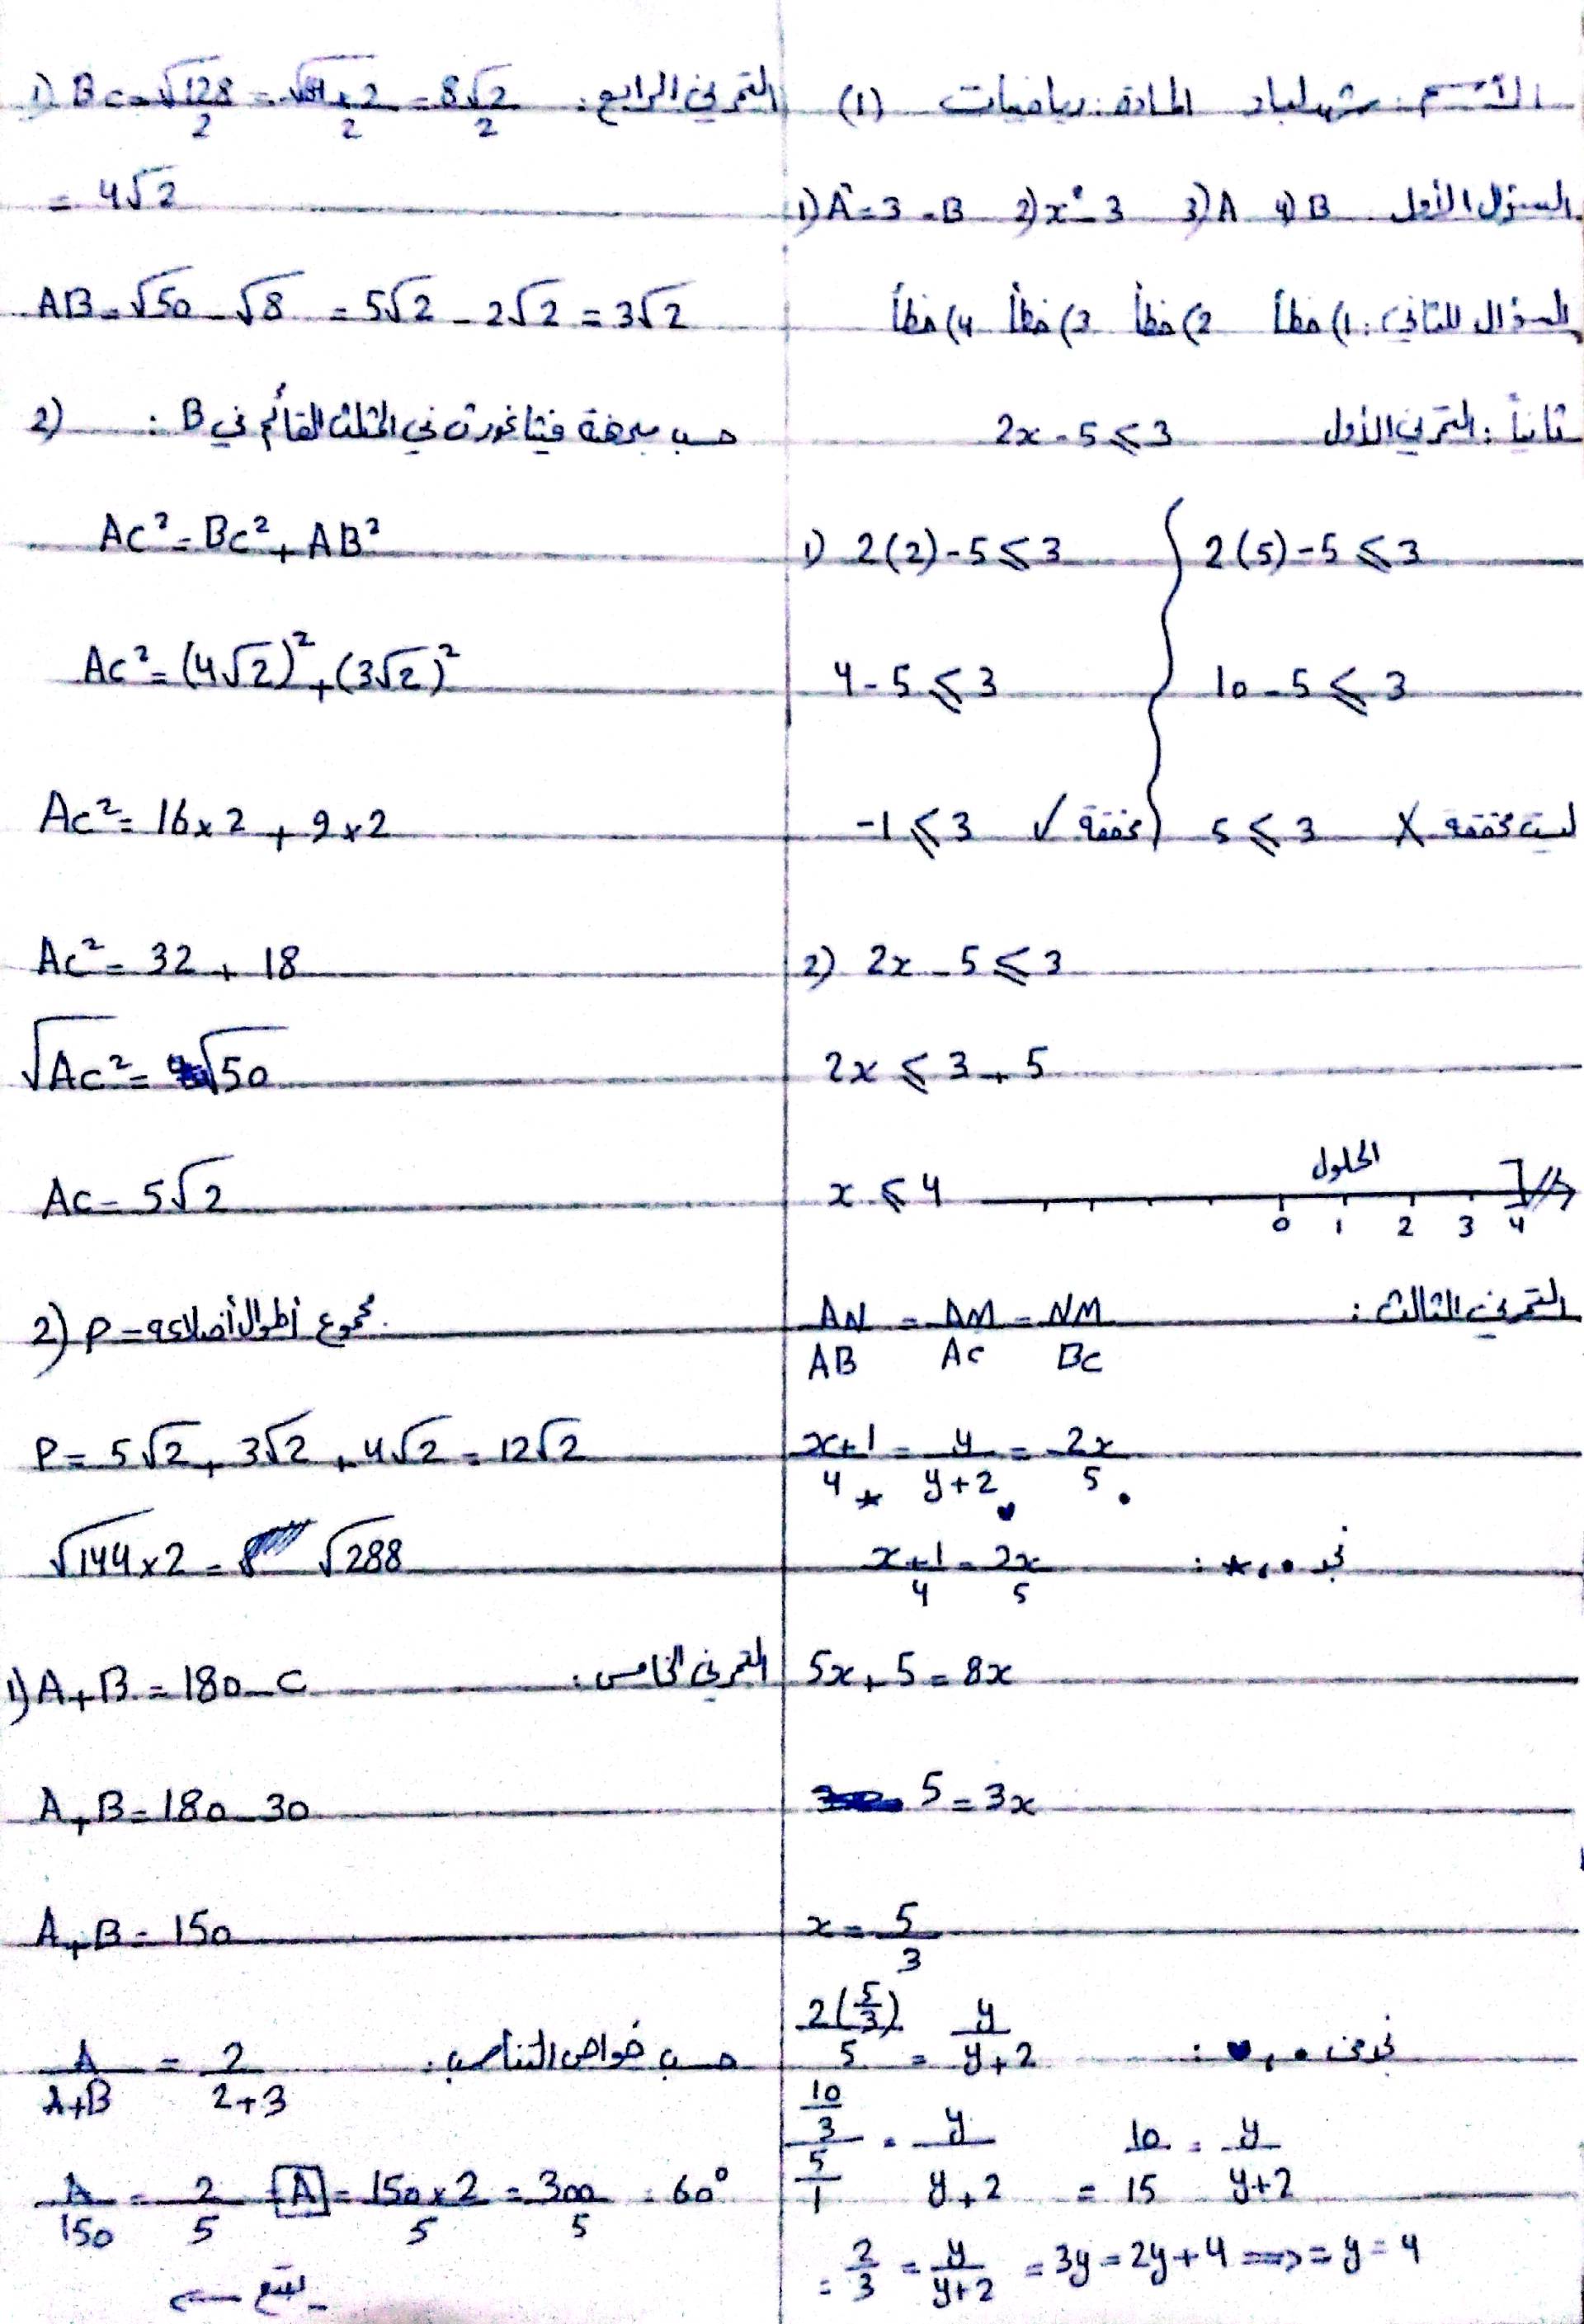 الاسم: شهد لباد المادة: رياضيات (1)
السؤال الأول 1) A=3-B 2) x=3 3) A 4) B
السؤال الثاني: 1) خطأ 2) خطأ 3) خطأ 4) خطأ
ثانياً: التمرين الأول 2x-5⩽3
1) 2(2)-5⩽3 2(5)-5⩽3
4-5⩽3 10-5⩽3
-1⩽3 ✓ محققة 5⩽3 X ليست محققة
2) 2x-5⩽3
2x⩽3+5
x⩽4 الحلول 0 1 2 3 4
التمرين الثالث: AN/AB = AM/AC = NM/BC
x+1/4 ★ = y/y+2 ♥ = 2x/5 •
نجد •، ★: x+1/4 = 2x/5
5x+5=8x
5=3x
x=5/3
من •، ♥: 2(5/3)/5 = y/y+2
10/3 / 5/1 = y/y+2 = 10/15 = y/y+2
= 2/3 = y/y+2 = 3y=2y+4 ⟹ = y=4
التمرين الرابع: 1) BC=√128/2 = √64×2/2 = 8√2/2
= 4√2
AB=√50-√8 = 5√2-2√2=3√2
2) حسب مبرهنة فيثاغورث في المثلث القائم في B:
AC²=BC²+AB²
AC²=(4√2)²+(3√2)²
AC²=16×2+9×2
AC²=32+18
√AC²=√50
AC=5√2
2) P=مجموع أطوال أضلاعه
P=5√2+3√2+4√2=12√2
√144×2=√288
التمرين الخامس: 1) A+B=180-C
A+B=180-30
A+B=150
حسب خواص التناسب: A/A+B = 2/2+3
A/150 = 2/5 A = 150×2/5 = 300/5 = 60°
يتبع ←